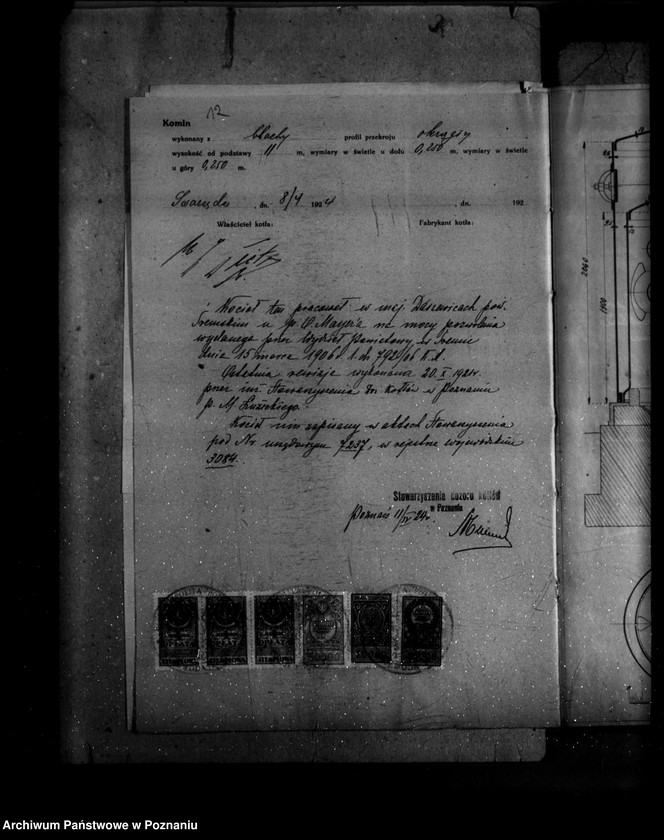 12
Komin
wykonany z blachy profil przekroju okrągły
wysokość od podstawy 11 m, wymiary w świetle u dołu 0,250 m, wymiary w świetle
u góry 0,250 m.
dn. 8/4 1924 , dn. 192
Właściciel kotła: Fabrykant kotła:
Kocioł ten pracował w maj. pow.
Śremskim u p. O. Mayer'a na mocy pozwolenia
wydanego przez Wydział Powiatowy w Śremie
dnia 15 marca 1906 r. l. dz. 792/06 K.A.
Ostatnia rewizja wykonana 20. X. 192
przez inż. Stowarzyszenia dz. Kotłów w Poznaniu
p. M.
Kocioł nin. zapisany w aktach Stowarzyszenia
pod Nr. 7237, w rejestrze wojewódzkim
3084.
Stowarzyszenie dozoru kotłów
w Poznaniu
Poznań 11/IV 24 r.
2060
1900
Archiwum Państwowe w Poznaniu